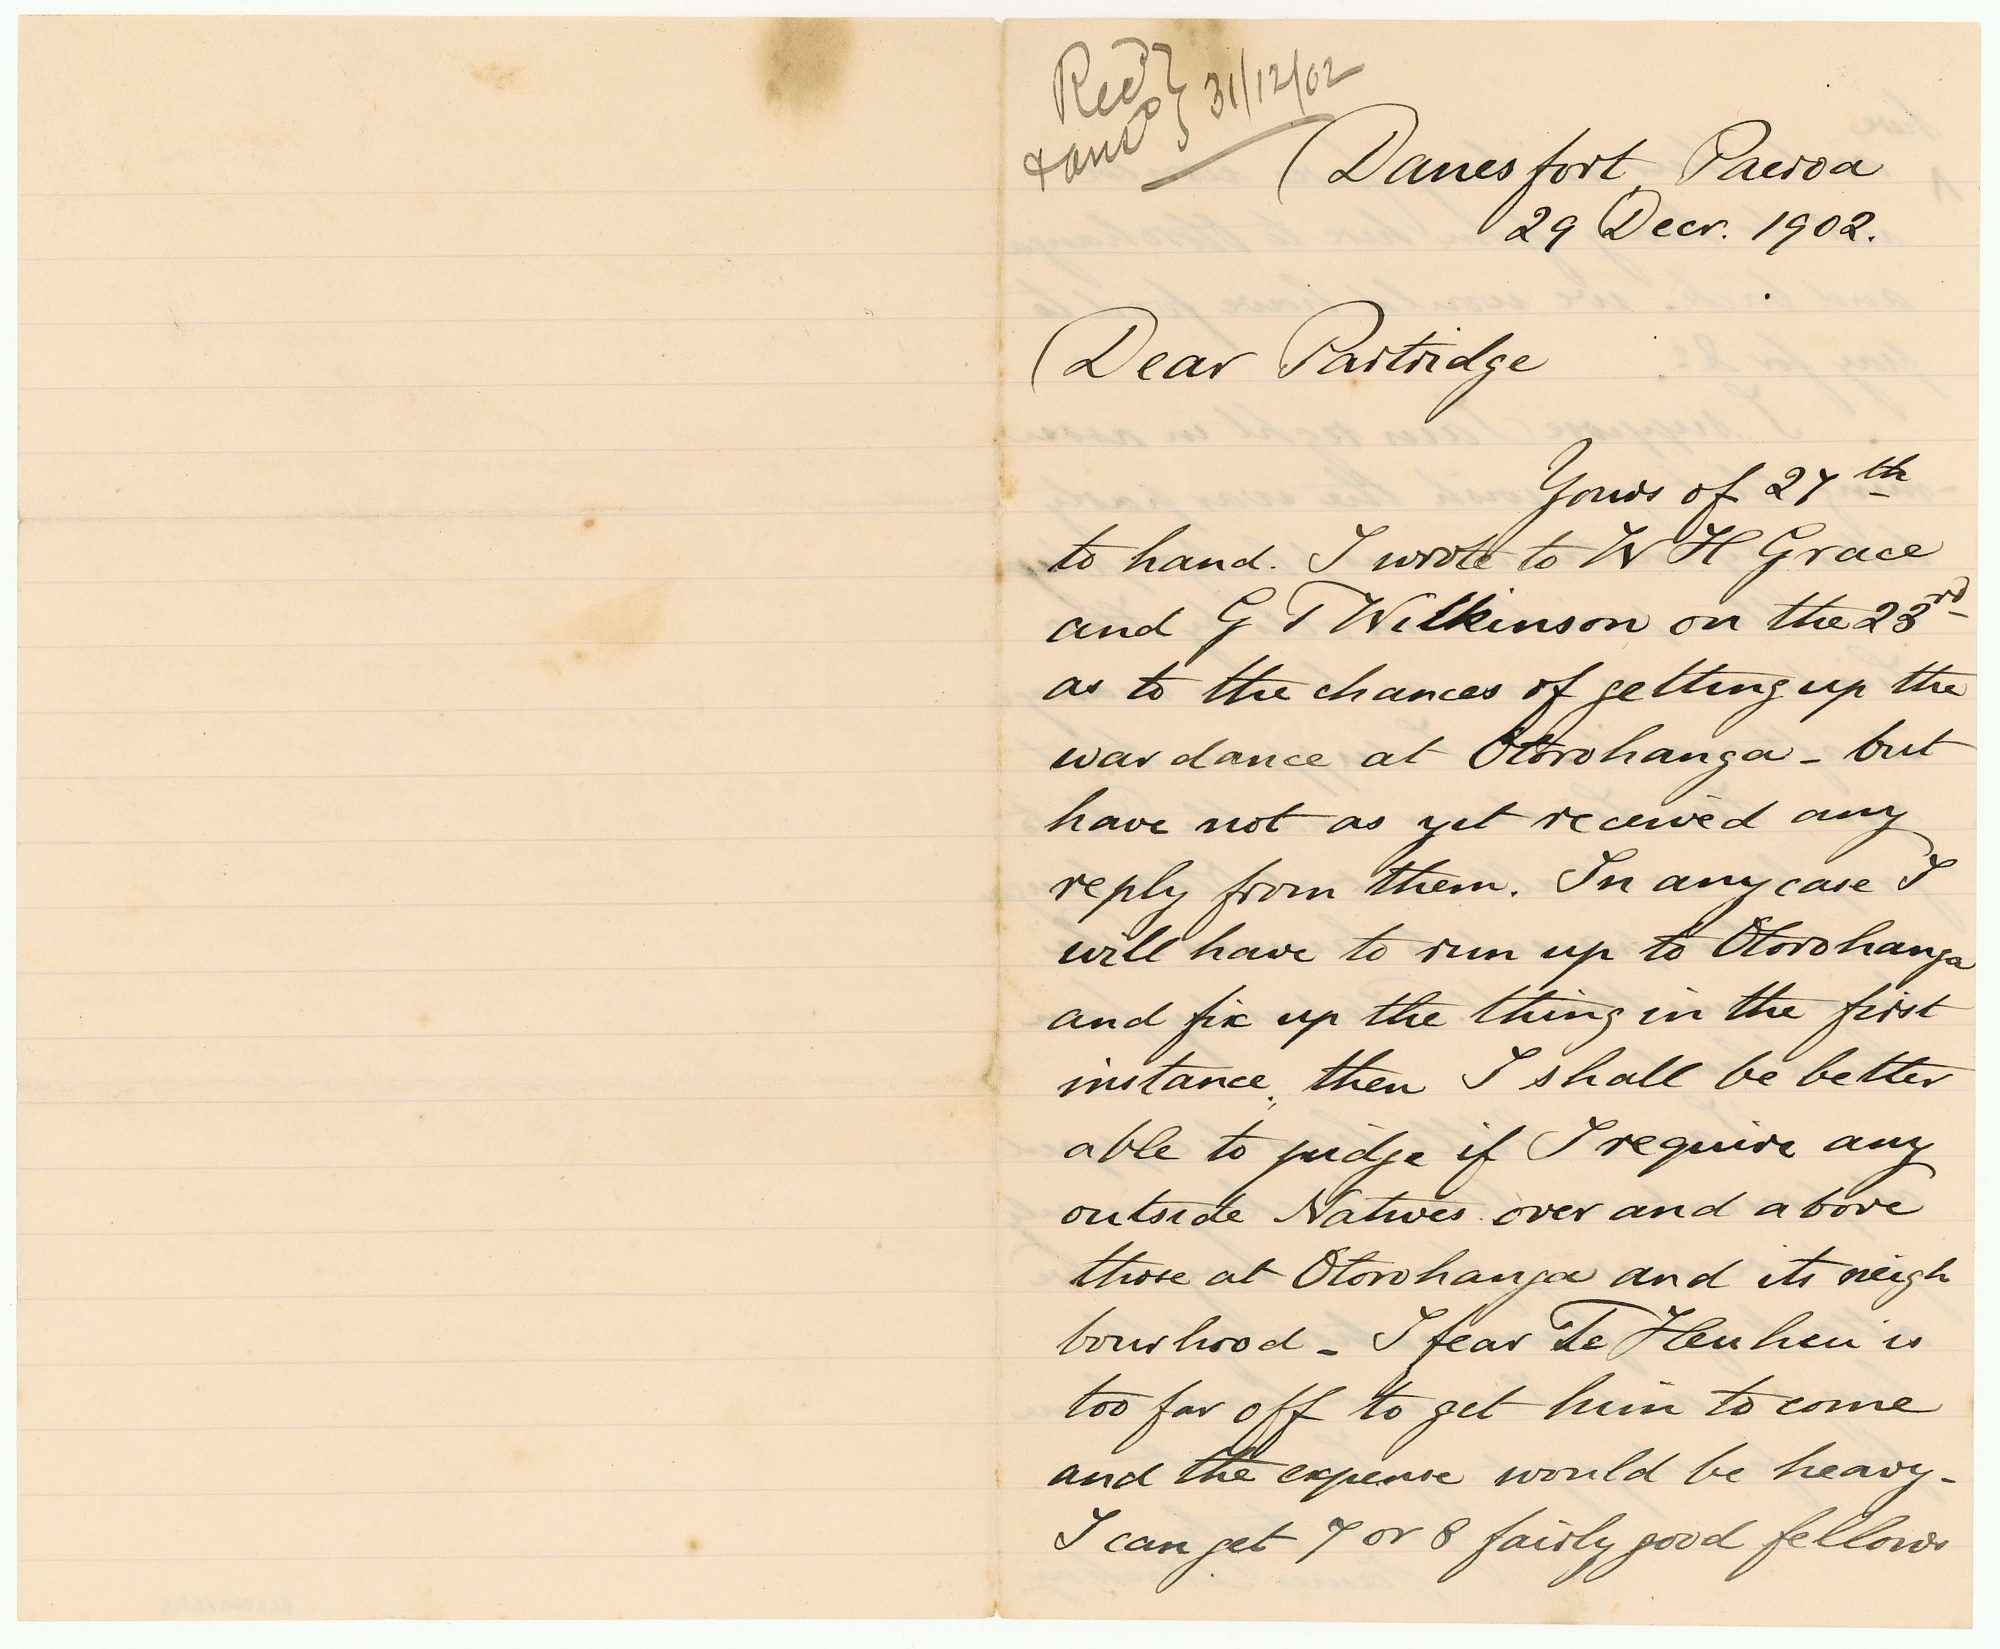 Recd } 31/12/02
& ansd
Danesfort, Paeroa
29 Decr. 1902.
Dear Partridge
Yours of 27th
to hand. I wrote to W H Grace
and G T Wilkinson on the 23rd
as to the chances of getting up the
war dance at Otorohanga - but
have not as yet received any
reply from them. In any case I
will have to run up to Otorohanga
and fix up the thing in the first
instance, then I shall be better
able to judge if I require any
outside Natives over and above
those at Otorohanga and its neigh
bourhood - I fear Te Heuheu is
too far off to get him to come
and the expense would be heavy -
I can get 7 or 8 fairly good fellows